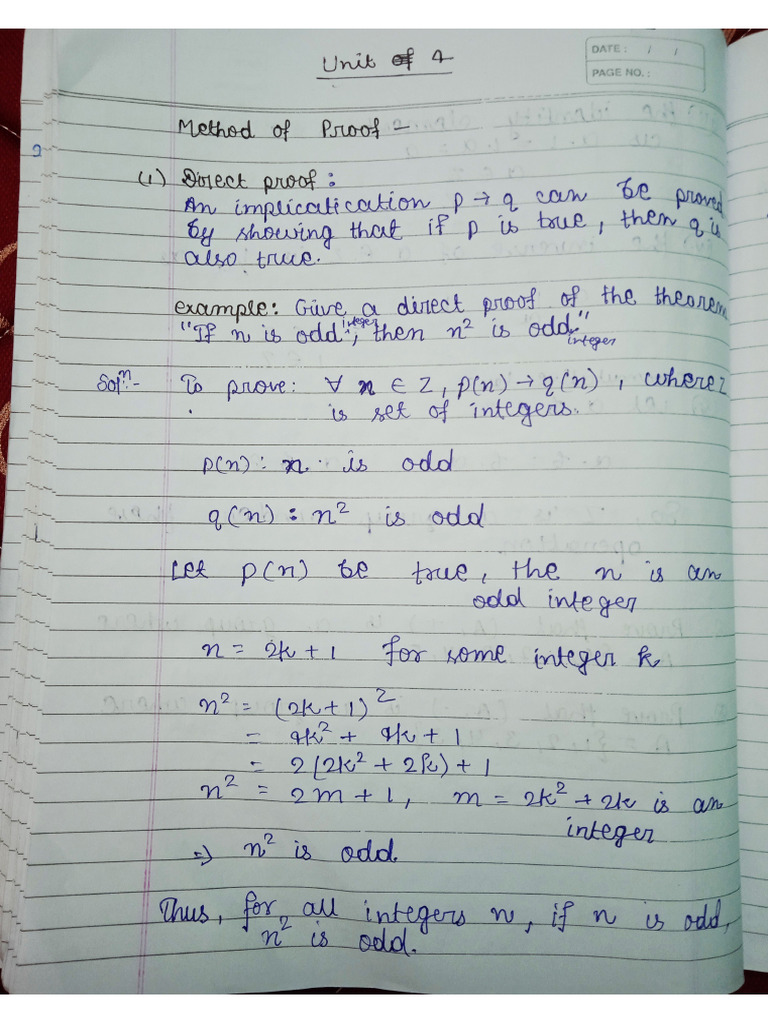 Unit of 4
DATE: / /
PAGE NO.:
Method of Proof -
(1) Direct proof:
An implicatication p → q can be proved
by showing that if p is true, then q is
also true.
example: Give a direct proof of the theorem
"If n is odd integer, then n² is odd integer"
Solⁿ:- To prove: ∀ n ∈ Z, p(n) → q(n), where Z
is set of integers.
p(n): n is odd
q(n): n² is odd
Let p(n) be true, the n is an
odd integer
n = 2k + 1 for some integer k
n² = (2k+1)²
= 4k² + 4k + 1
= 2(2k² + 2k) + 1
n² = 2m + 1, m = 2k² + 2k is an
integer
=) n² is odd.
Thus, for all integers n, if n is odd,
n² is odd.